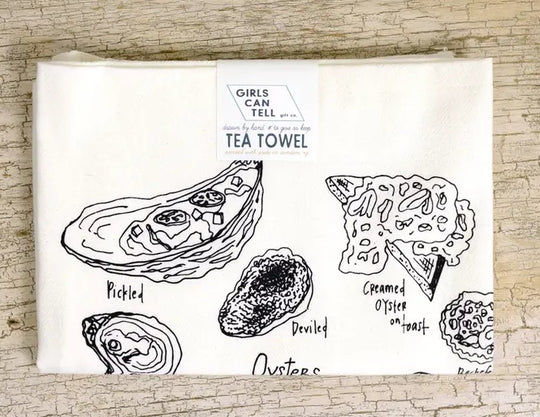 GIRLS
CAN
TELL gift co.
drawn by hand
TEA TOWEL
Pickled
Deviled
Creamed
Oyster
on toast
Oysters